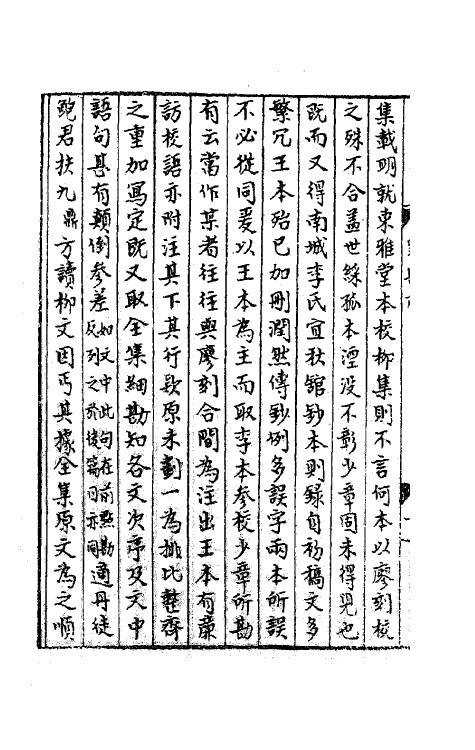 集載明就東雅堂本校柳集則不言何本以廖刻校
之殊不合蓋世綵孤本湮没不彰少章固未得見也
既而又得南城李氏宜秋館鈔本則録自初稿文多
繁冗王本殆已加刪潤然傳鈔例多誤字兩本所誤
不必從同爰以王本為主而取李本參校少章所勘
有云當作某者往往與廖刻合間為注出王本有藁
訪校語亦附注其下其行欵原未劃一為排比整齊
之重加寫定既又取全集細勘知各文次序及文中
語句甚有顛倒參差如文中此句在前㸃勘反列之於後篇目亦同適丹徒
鮑君扶九鼎方讀柳文因丐其據全集原文為之順